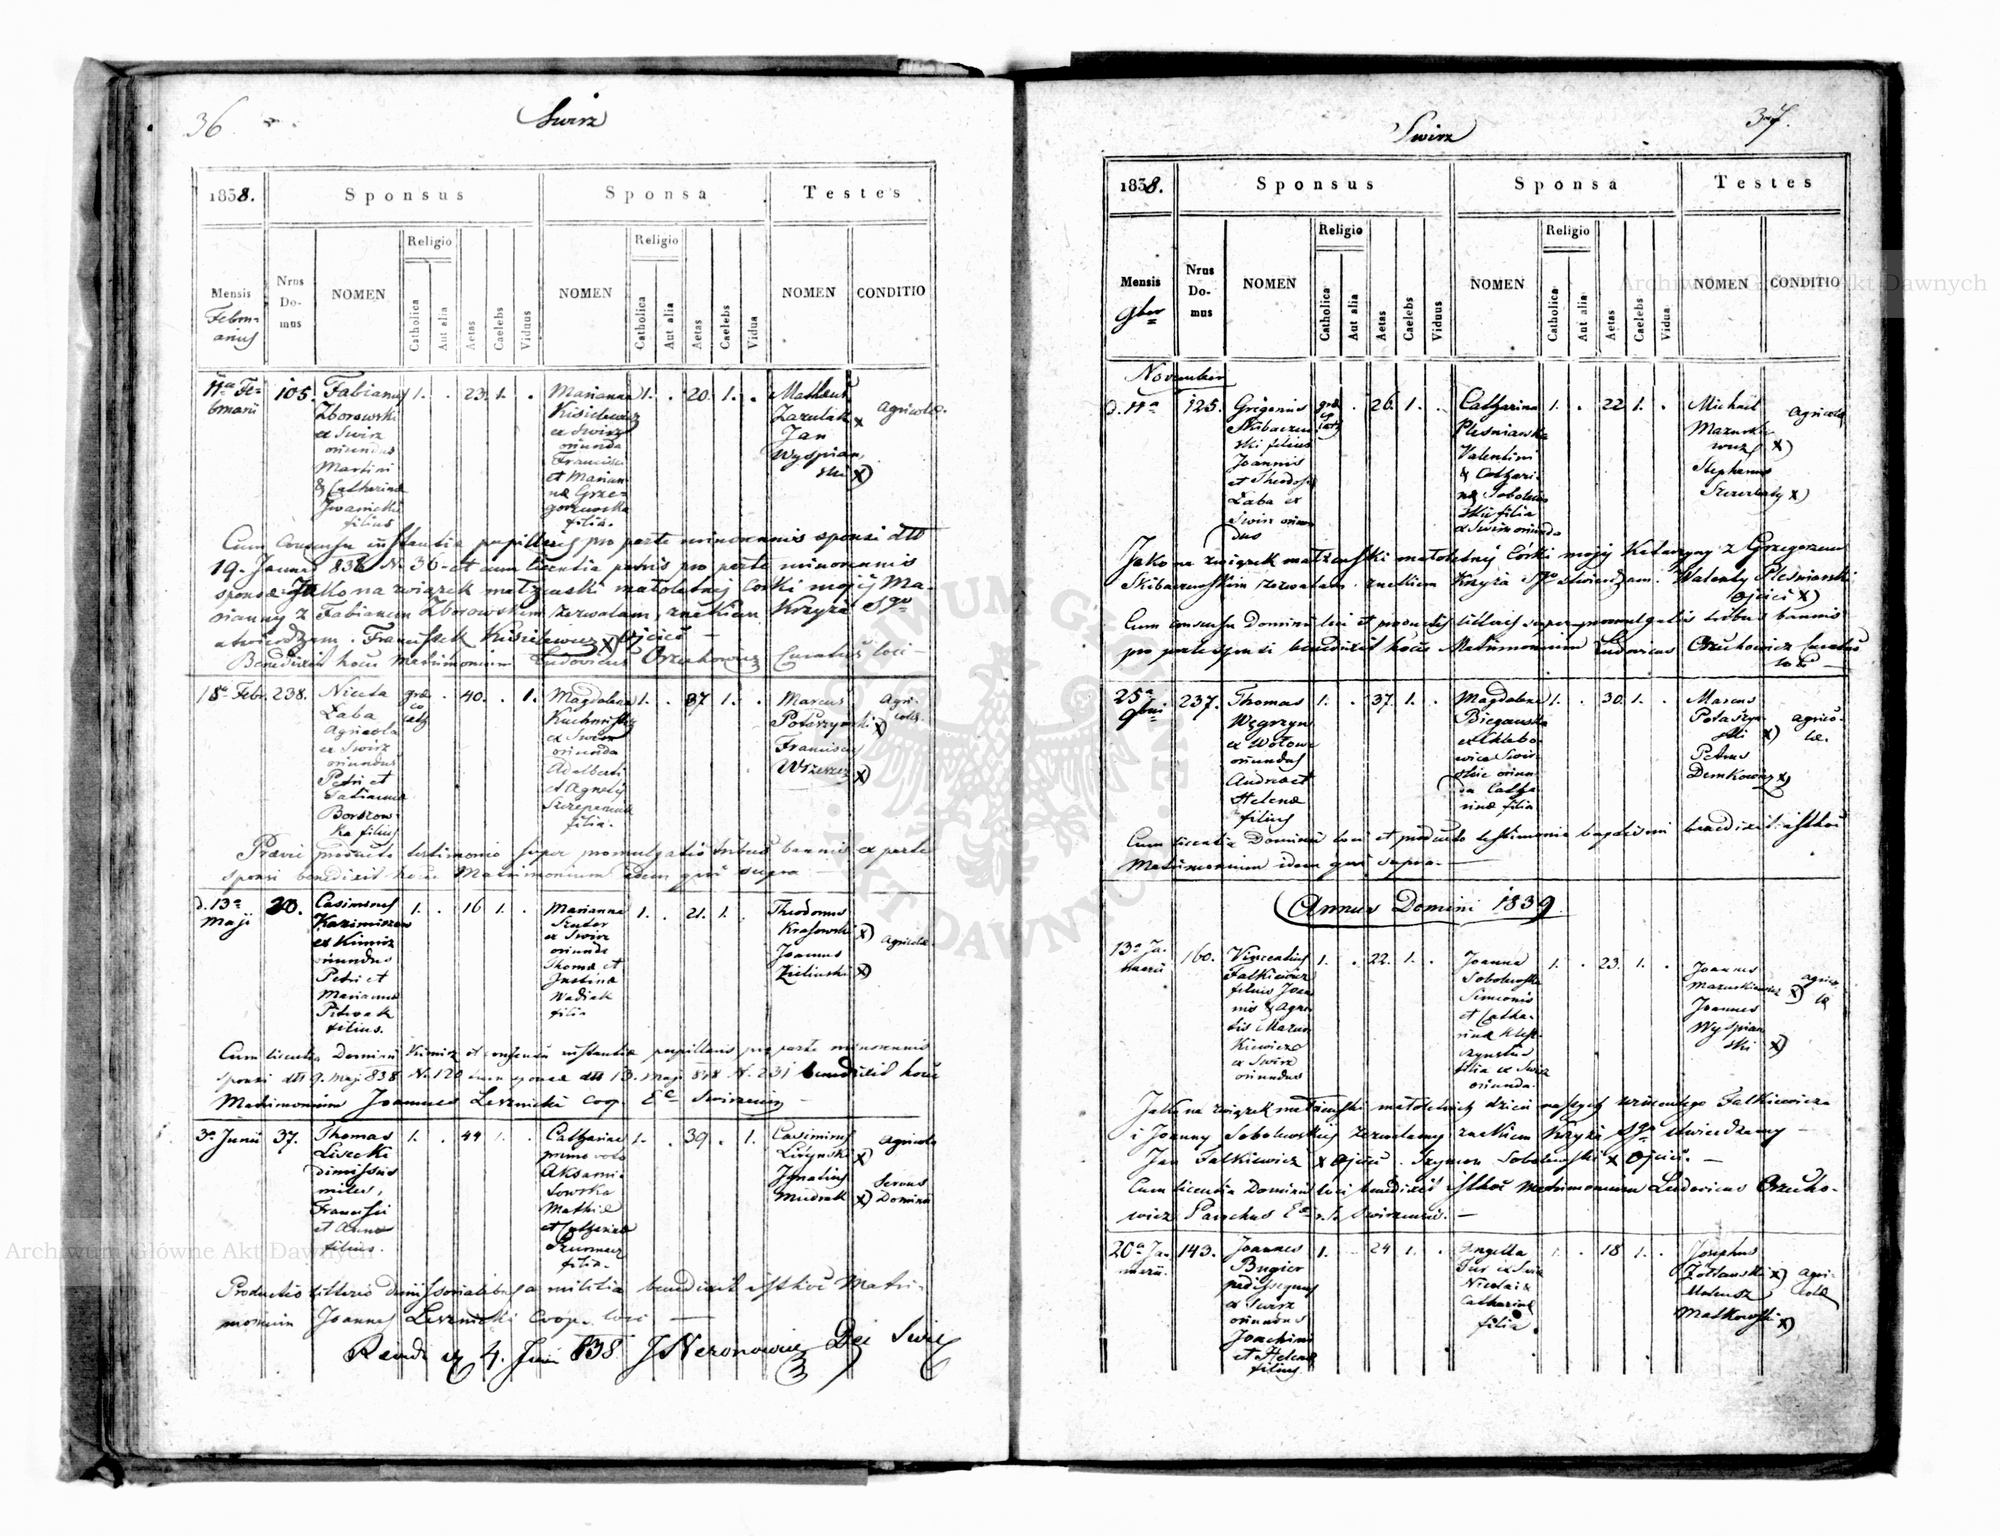 36
Swirz
1838.
Sponsus
Sponsa
Testes
Mensis
Nrus Domus
NOMEN
Religio
Catholica
Aut alia
Aetas
Caelebs
Viduus
NOMEN
Religio
Catholica
Aut alia
Aetas
Caelebs
Vidua
NOMEN
CONDITIO
11a Fe-
bruarii
105.
Fabianus
Zborowski
ex Swirz
oriundus
Martini
& Catharinæ
Iwanicka
filius
1. . 23. 1. .
Marianna
Kisielewicz
ex Swirz
oriunda
Francisci
et Marian
næ Grze-
gorzewska
filia.
1. . 20. 1. .
Matheus
Zazulak x
Jan
Wyspian
ski x)
Agricolæ.
Cum consensu instantiæ pupillaris pro parte minorennis sponsi dtto
19. Januar 838 N. 36 et cum licentia patris pro parte minorennis
sponsæ Jako na związek małżenski małoletney Corki mojej Ma-
rianny z Fabianem Zborowskim zezwalam, znakiem Krzyża Sgo
stwierdzam. Franciszek Kisielewicz x) Ojciec
Benedixit hocce Matrimonium Ludovicus Orzechowicz Curatus loci
18a Febr. 238.
Niceta
Łaba
Agricola
ex Swirz
oriundus
Petri et
Tatianna
Borszow-
ka filius
græ
co
cath
. 40. . 1.
Magdalena
ex Swirz
oriunda
Adalberti
et Agnetis
Szczepaniak
filia.
1. . 37 1. .
Marcus
Potaszynski x)
Franciscus
Wszerecz x)
Agri-
colæ.
Prævie producto testimonio super promulgatis tribus bannis ex parte
sponsi benedixit hocce Matrimonium idem qui supra
d. 13a
Maji
20.
Casimirus
Kazimirow
ex Kimirz
oriundus
Petri et
Marianna
Pitwak
filius.
1. . 16 1. .
Marianna
Szuter
ex Swirz
oriunda
Thomæ et
Justinæ
Wadiak
filia
1. . 21. 1. .
Theodorus
Krasowski x)
Joannes
Zielinski x)
Agricolæ
Cum licentia Dominii Kimirz et consensu instantiæ pupillaris pro parte minorennis
sponsi dtto 9. Maji 838 N. 120 cum sponsæ dtto 13. Maji 838 N. 231 benedixit hocce
Matrimonium Joannes Lesznicki Coop. Ec Swirzensis
3a Junii 37.
Thomas
Lisecki
dimissus
miles,
Francisci
et Anna
filius.
1. . 44 1. .
Catharina
primo voto
Aksami-
towska
Mathiæ
et Catharinæ
filia.
1. . 39. . 1.
Casimirus
Lutynski x)
Ignatius
Mudrak x)
Agricola
Servus
Dominii
Productis litteris dimissorialibus a militia benedixit isthoc Matri-
monium Joannes Lesznicki Coop. loci
4. Juni 838
37.
Swirz
1838.
Sponsus
Sponsa
Testes
Mensis
9ber
Nrus Domus
NOMEN
Religio
Catholica
Aut alia
Aetas
Caelebs
Viduus
NOMEN
Religio
Catholica
Aut alia
Aetas
Caelebs
Vidua
NOMEN
CONDITIO
November
d. 11a
125.
Grigorius
Skibaczew
ski filius
Joannis
et Theodosiæ
Łaba ex
Swirz oriun
dus
græ
co
cath
. 26. 1. .
Catharina
Plesniawska
Valentini
& Cathari-
næ Sobolew
ska filia
ex Swirz oriunda
1. . 22 1. .
Michael
Mazurke
wicz x)
Stephanus
Szczerbaty x)
Agricolæ
Jako na związek małżenski małoletney Córki mojej Katarzyny z Grzegorzem
Skibaczewskim zezwalam znakiem Krzyża Sgo stwierdzam. Walenty Plesniarski
Ojciec x)
Cum consensu Dominii loci et productis litteris super promulgatis tribus bannis
pro parte sponsi benedixit hocce Matrimonium Ludovicus Orzechowicz Curatus
loci
25a
9bris
237.
Thomas
Węgrzyn
ex Wołowe
oriundus
Andreæ et
Helenæ
filius
1. . 37. 1. .
Magdalena
Biegauska
ex Chlebo-
wice Swir-
skie oriun-
da Catha-
rinæ filia
1. . 30. 1. .
Marcus
Potaszyn
ski x)
Petrus
Demkowicz x)
Agrico-
læ.
Cum licentia Dominii loci et producto testimonio baptismi benedixit isthoc
Matrimonium idem qui supra.
Annus Domini 1839
13a Ja-
nuarii
160.
Vincentius
Falkiewicz
filius Joan
nis & Agne
tis Mazur
Kiewicz
ex Swirz
oriundus
1. . 22. 1. .
Joanna
Sobolewska
Simeonis
et Catha-
rinæ
filia ex Swirz
oriunda.
1. . 23. 1. .
Joannes
Mazurkiewicz x)
Joannes
Wyspian
ski x)
Agrico
læ
Jako na związek małżenski małoletnich dzieci naszych Wincentego Falkiewicza
i Joanny Sobolewskiej zezwalamy znakiem Krzyża Sgo stwierdzamy
Jan Falkiewicz x Ojciec. Szymon Sobolewski x Ojciec.
Cum licentia Dominii loci benedixit isthoc Matrimonium Ludovicus Orzecho-
wicz Parochus Swirzensis.
20a Jan
nuarii.
143.
Joannes
Bugier
pedissequus
ex Swirz
oriundus
Joachimi
et Helenæ
filius
1. . 24 1. .
Angella
Fur ex Swirz
Nicolai &
Catharinæ
filia
1. . 18 1. .
Josephus
Żółtanski x)
Mateusz
Matkowski x)
Agri-
colæ
Archiwum Główne Akt Dawnych
Archiwum Główne Akt Dawnych
ARCHIWUM GŁÓWNE AKT DAWNYCH